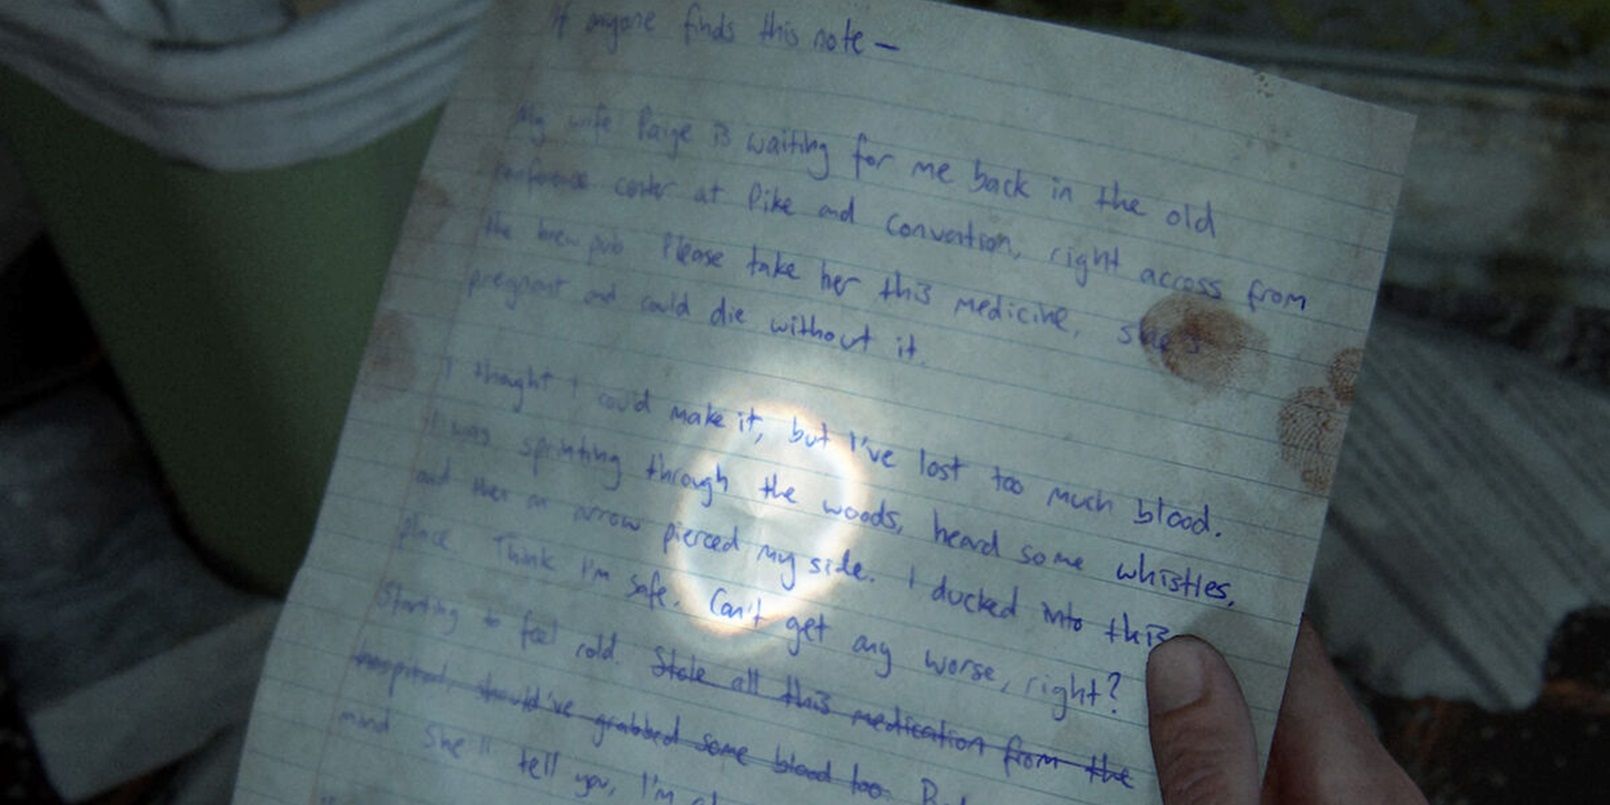 If anyone finds this note —
My wife Paige is waiting for me back in the old
conference center at Pike and Convention, right across from
the brew pub. Please take her this medicine, she's
pregnant and could die without it.
I thought I could make it, but I've lost too much blood.
I was sprinting through the woods, heard some whistles,
and then an arrow pierced my side. I ducked into this
place. Think I'm safe. Can't get any worse, right?
Starting to feel cold. Stole all this medication from the
hospital, should've grabbed some blood too.
mind she'll tell you, I'm